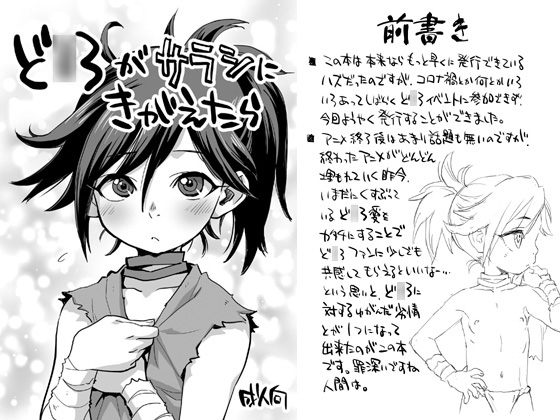 ど ろがサラシに
きがえたら
成人向
前書き
この本は本来ならもっと早くに発行できている
ハズだったのですが、コロナ禍とか何とかいろ
いろあってしばらくど ろイベントに参加できず
今回ようやく発行することができました。
アニメ終了後はあまり話題も無いのですが、
終わったアニメがどんどん
埋もれていく昨今、
いまだにくすぶって
いるど ろ愛を
カタチにすることで
ど ろファンに少しでも
共感してもらえるといいなー…
という思いと、ど ろに
対するゆがんだ劣情
とが1つになって
出来たのがこの本
です。罪深いですね
人間は。